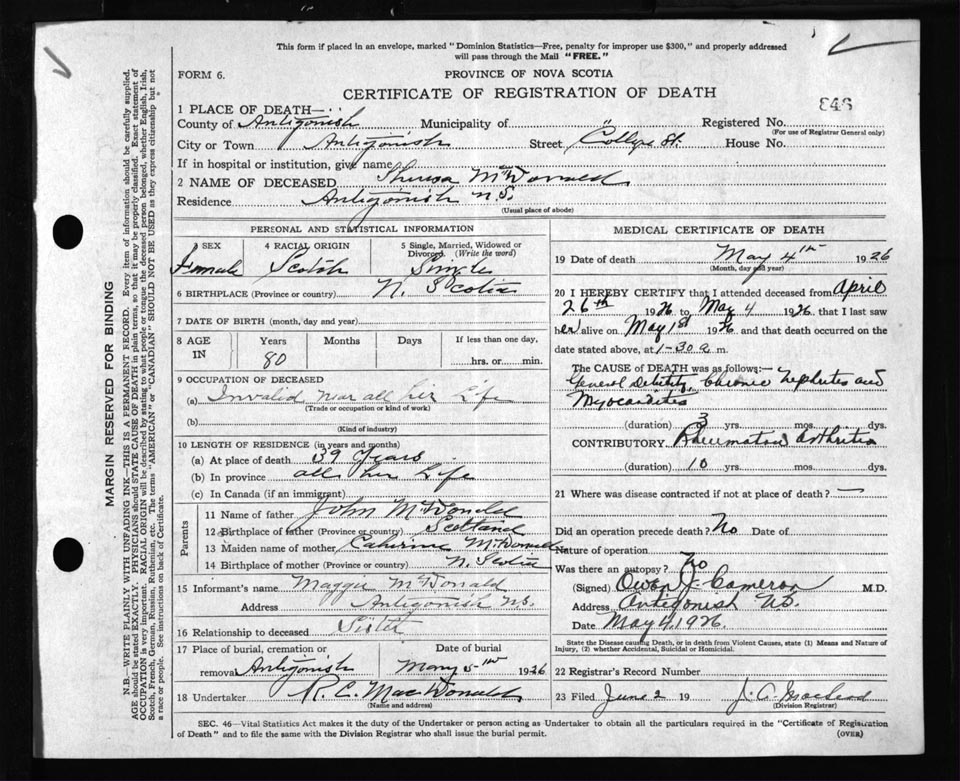 This form if placed in an envelope, marked "Dominion Statistics—Free, penalty for improper use $300," and properly addressed
will pass through the Mail "FREE."
FORM 6.
PROVINCE OF NOVA SCOTIA
CERTIFICATE OF REGISTRATION OF DEATH
846
1 PLACE OF DEATH—
County of Antigonish Municipality of " Registered No.
(For use of Registrar General only)
City or Town Antigonish Street College St. House No.
If in hospital or institution, give name
2 NAME OF DECEASED Theresa McDonald
Residence Antigonish N.S.
(Usual place of abode)
PERSONAL AND STATISTICAL INFORMATION
3 SEX 4 RACIAL ORIGIN 5 Single, Married, Widowed or Divorced. (Write the word)
Female Scotch Single
6 BIRTHPLACE (Province or country) N. Scotia
7 DATE OF BIRTH (month, day and year)
8 AGE IN Years Months Days If less than one day,
80 hrs. or min.
9 OCCUPATION OF DECEASED
(a) Invalid near all her Life
(Trade or occupation or kind of work)
(b)
(Kind of industry)
10 LENGTH OF RESIDENCE (in years and months)
(a) At place of death 39 Years
(b) In province all her Life
(c) In Canada (if an immigrant)
Parents
11 Name of father John McDonald
12 Birthplace of father (Province or country) Scotland
13 Maiden name of mother Caterine McDonald
14 Birthplace of mother (Province or country) N. Scotia
15 Informant's name Maggie McDonald
Address Antigonish N.S.
16 Relationship to deceased Sister
17 Place of burial, cremation or removal Antigonish Date of burial May 5th 1926
18 Undertaker R. C. MacDonald
(Name and address)
MEDICAL CERTIFICATE OF DEATH
19 Date of death May 4th 1926
(Month, day and year)
20 I HEREBY CERTIFY that I attended deceased from April
26th 1926 to May 4 1926, that I last saw
her alive on May 1st 1926 and that death occurred on the
date stated above, at 1-30 a m.
The CAUSE OF DEATH was as follows:—
General Debility, Chronic Nephrites and
Myocardites
(duration) 3 yrs. mos. dys.
CONTRIBUTORY Rheumatoid Arthritis
(duration) 10 yrs. mos. dys.
21 Where was disease contracted if not at place of death? —
Did an operation precede death? No Date of
Nature of operation
Was there an autopsy? No
(Signed) Owen J. Cameron M.D.
Address Antigonish N.S.
Date May 4, 1926.
State the Disease causing Death, or in death from Violent Causes, state (1) Means and Nature of
Injury, (2) whether Accidental, Suicidal or Homicidal.
22 Registrar's Record Number
23 Filed June 2 19 J. A. MacLeod
(Division Registrar)
SEC. 46—Vital Statistics Act makes it the duty of the Undertaker or person acting as Undertaker to obtain all the particulars required in the "Certificate of Registration
of Death" and to file the same with the Division Registrar who shall issue the burial permit. (OVER)
MARGIN RESERVED FOR BINDING
N.B.—WRITE PLAINLY WITH UNFADING INK—THIS IS A PERMANENT RECORD. Every item of information should be carefully supplied.
AGE should be stated EXACTLY. PHYSICIANS should STATE CAUSE OF DEATH in plain terms, so that it may be properly classified. Exact statement of
OCCUPATION is very important. RACIAL ORIGIN will be described by stating to what people or tongue the deceased person belonged, whether English, Irish,
Scotch, French, German, Russian, Ruthenian, etc. The terms "AMERICAN" or "CANADIAN" SHOULD NOT BE USED as they express citizenship but not
a race or people. See instructions on back of Certificate.